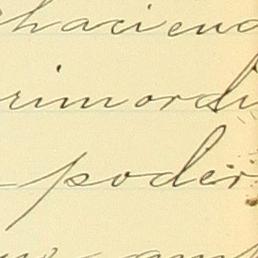 hacienda
rimordi
poder